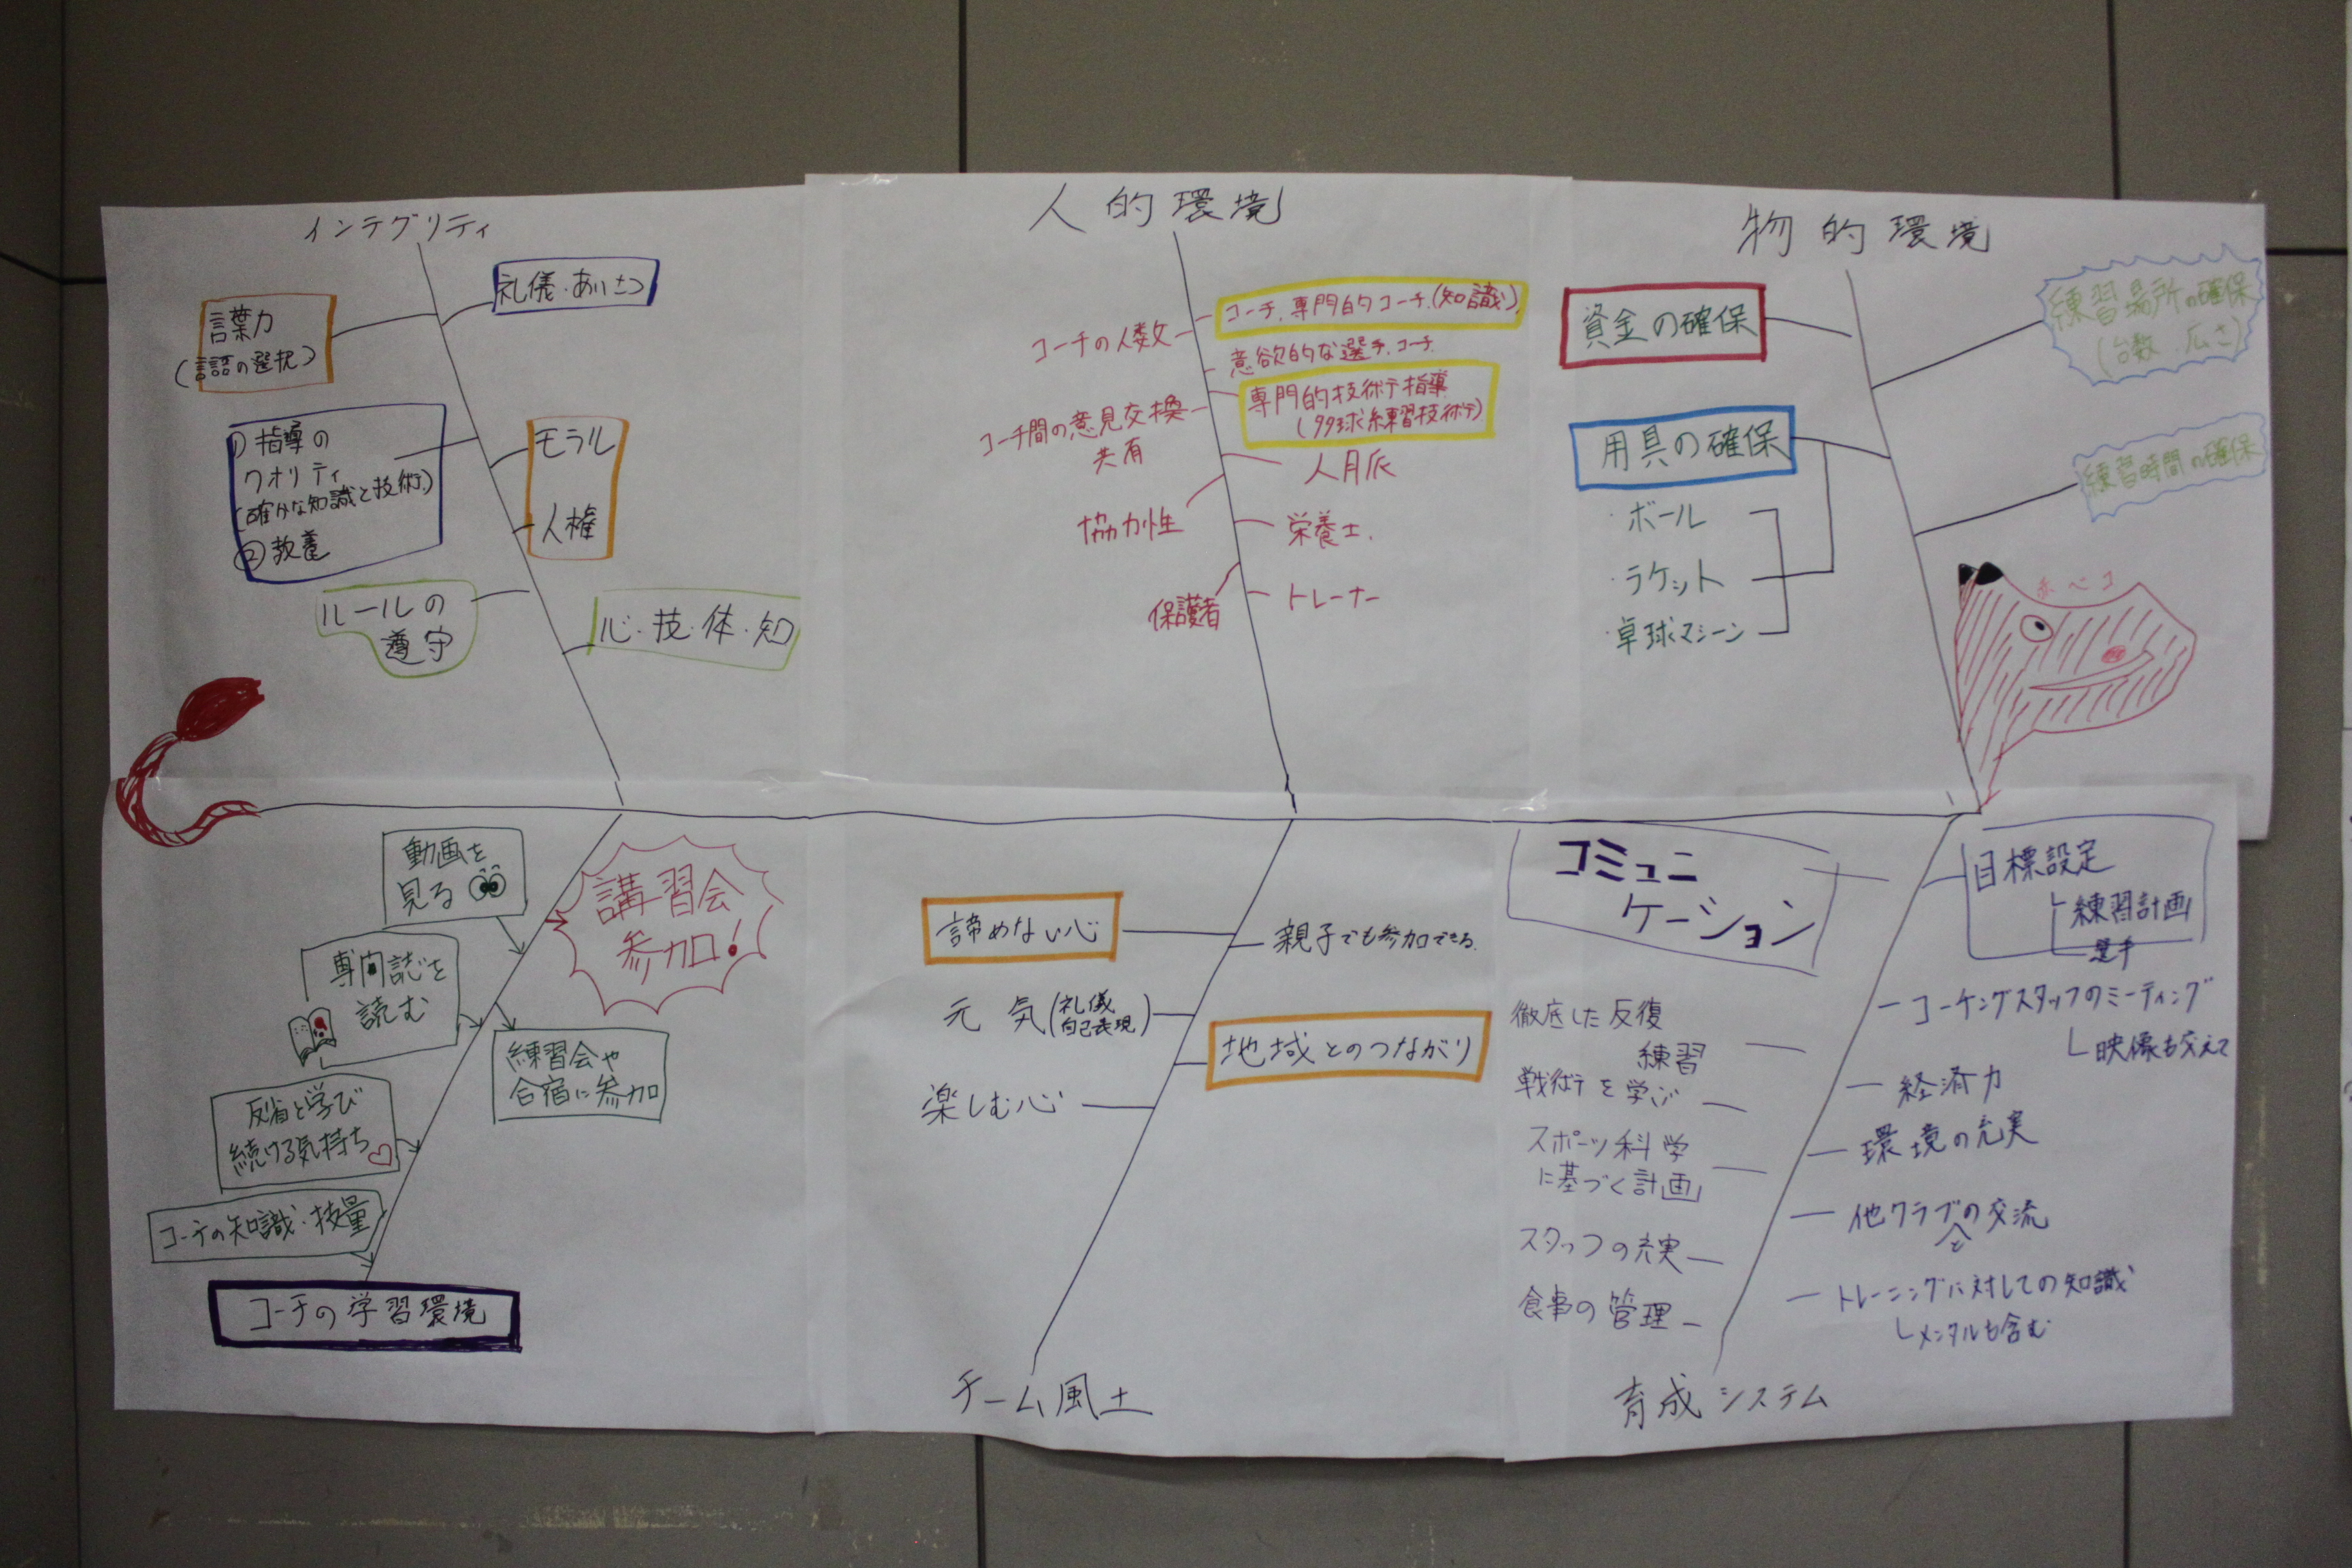 インテグリティ
礼儀・あいさつ
言葉力
(言語の選択)
①指導の
クオリティ
(確かな知識と技術)
②教養
モラル
人権
ルールの
遵守
心・技・体・知
人的環境
コーチ.専門的コーチ.(知識)
コーチの人数
意欲的な選手.コーチ.
専門的技術指導
(99球練習技術)
コーチ間の意見交換
共有
人脈
協力性
栄養士.
保護者
トレーナー
物的環境
資金の確保
練習場所の確保
(台数.広さ)
用具の確保
・ボール
・ラケット
・卓球マシーン
練習時間の確保
赤べコ
動画を
見る
講習会
参加!
専門誌を
読む
練習会や
合宿に参加
反省と学び
続ける気持ち
コーチの知識・技量
コーチの学習環境
諦めない心
親子でも参加できる.
元気(礼儀
自己表現)
地域とのつながり
楽しむ心
チーム風土
コミュニ
ケーション
目標設定
練習計画
選手
徹底した反復
練習
コーチングスタッフのミーティング
映像も交えて
戦術を学ぶ
経済力
スポーツ科学
に基づく計画
環境の充実
スタッフの充実
他クラブとの交流
食事の管理
トレーニングに対しての知識
メンタルも含む
育成システム